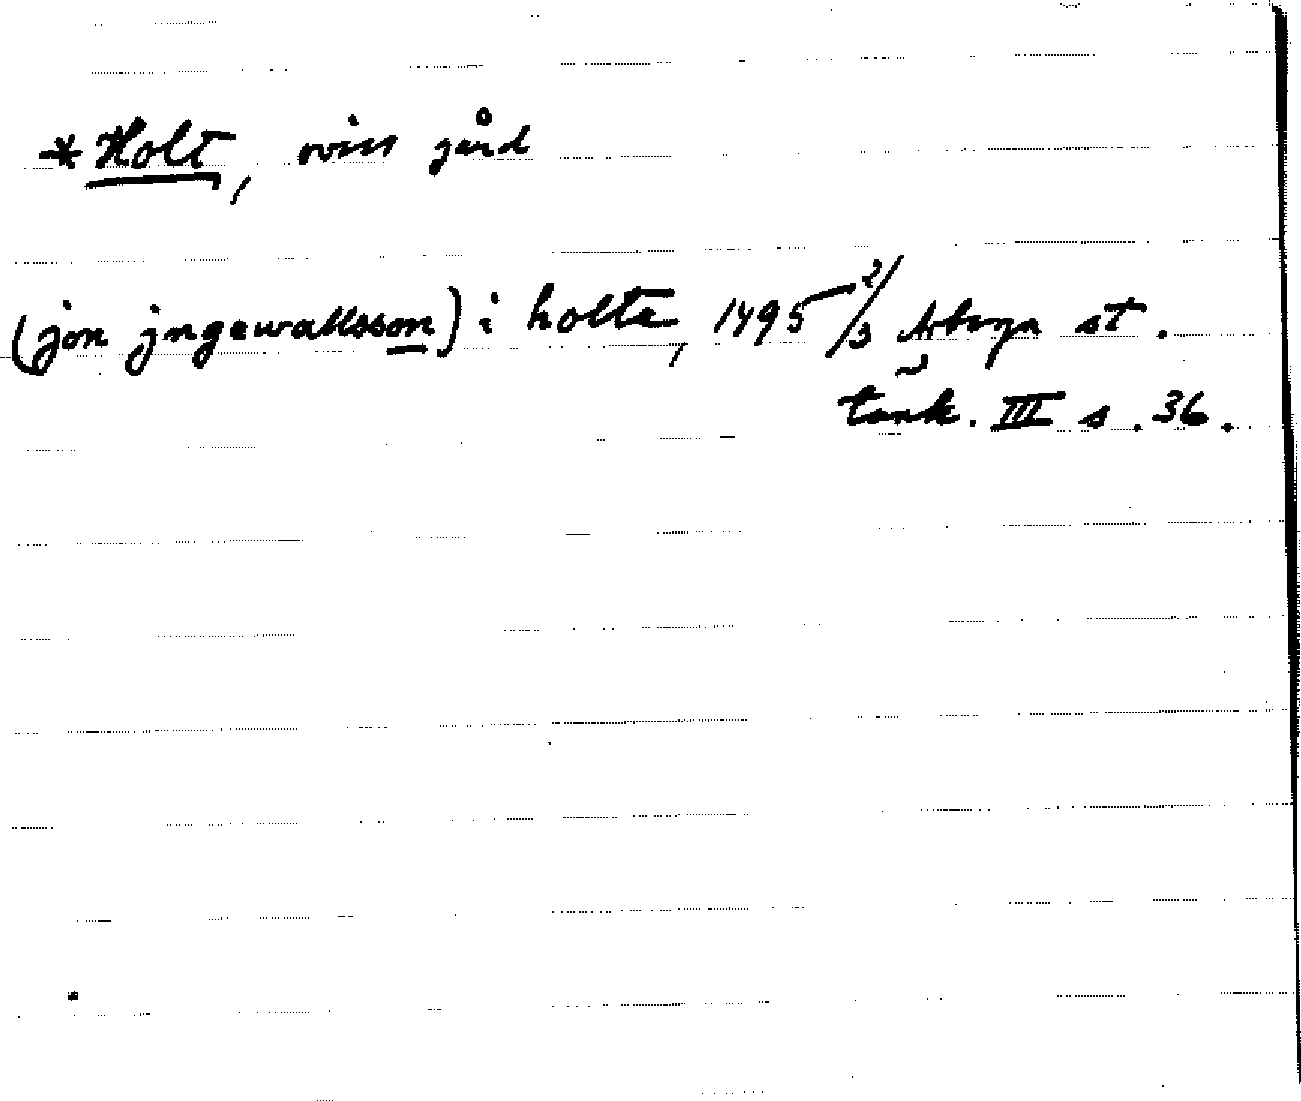 *Holt, viss gård
(jon jngewallsson) i holta, 1495 2/3 Arboga st.
tänk. III s. 36.